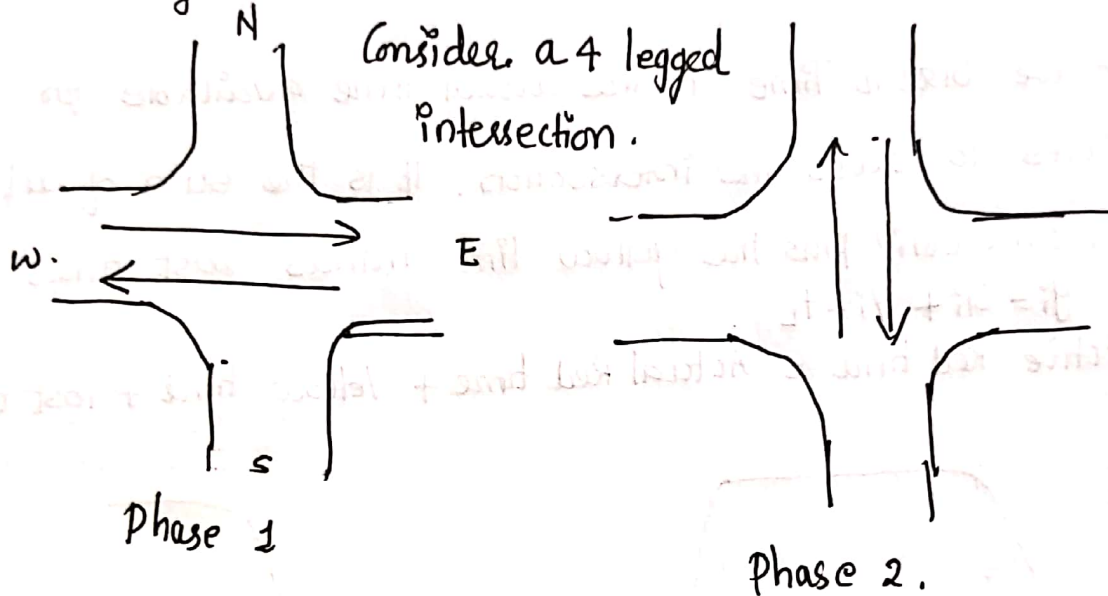 N
Consider a 4 legged
intersection.
W.
E
S
Phase 1
Phase 2.